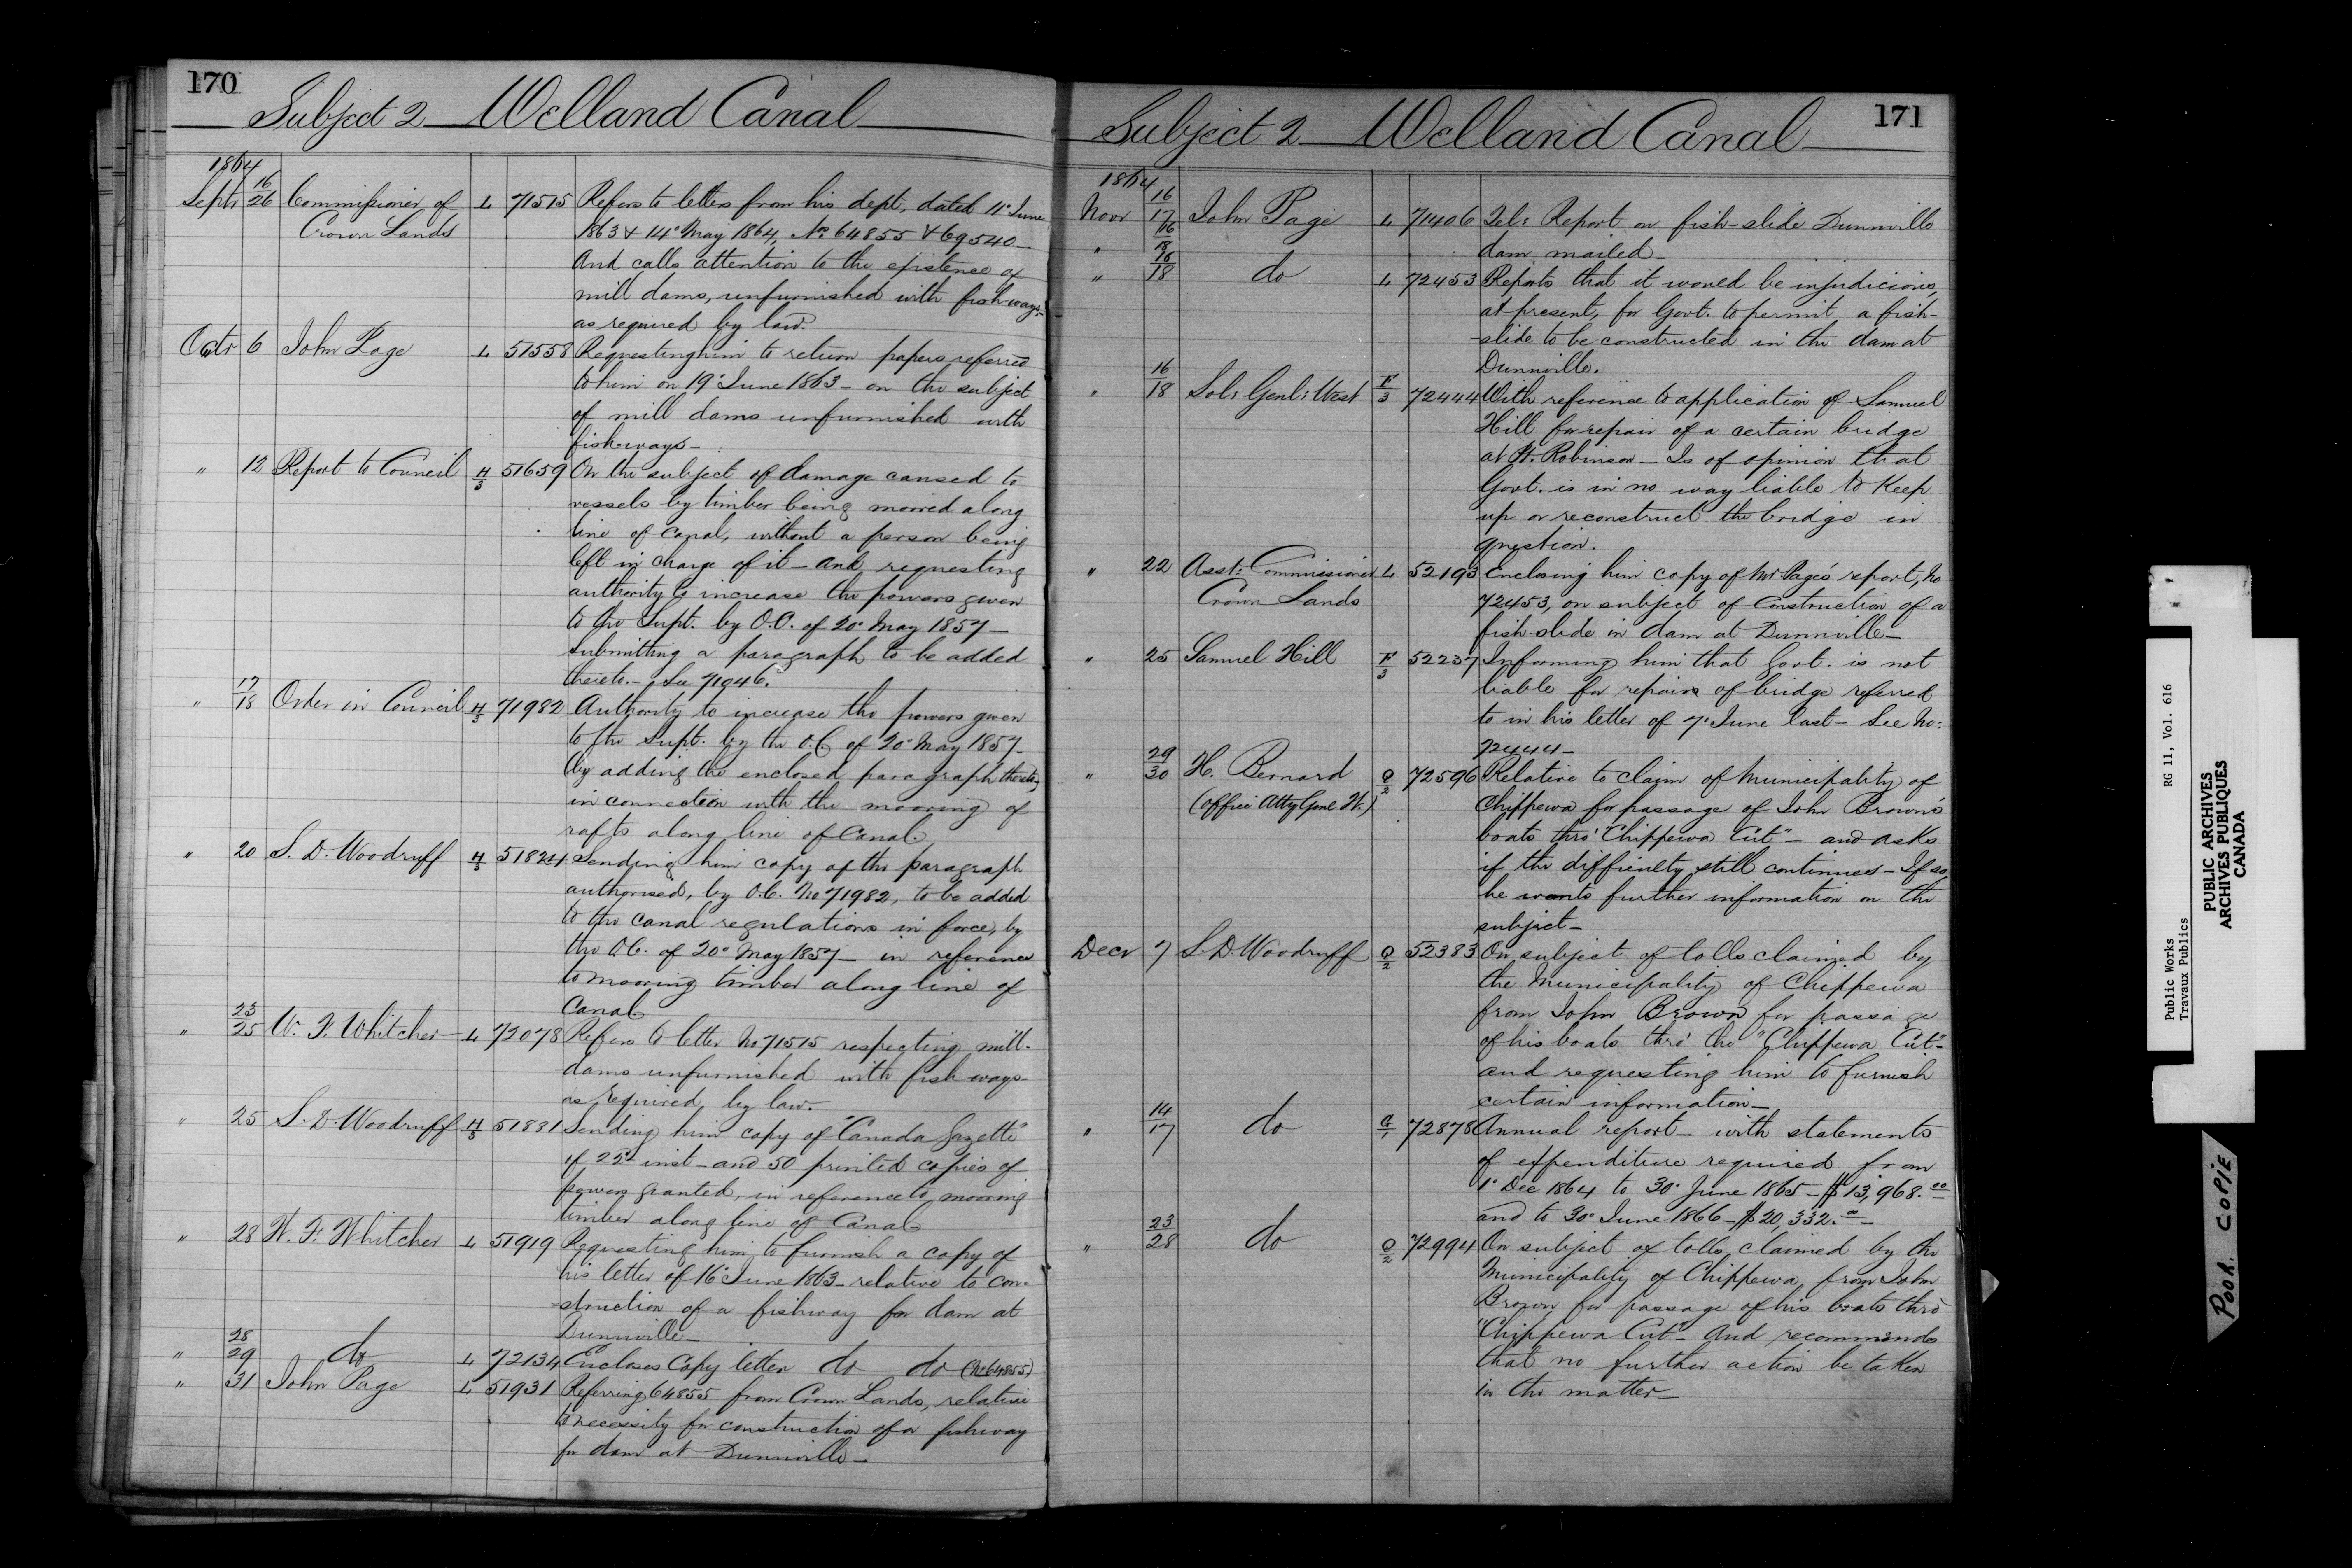 170
Subject 2 Welland Canal
1864
Sept 16/26 Commissioner of L 71515 Refers to letters from his dept, dated 11° June
Crown Lands 1863 & 14° May 1864, No 64855 & 69540—
And calls attention to the existence of
mill dams, unfurnished with fishways—
as required by law.
Octr 6 John Page L 51558 Requesting him to return papers referred
to him on 19° June 1863— on the subject
of mill dams unfurnished with
fishways—
" 12 Report to Council H/3 51659 On the subject of damage caused to
vessels by timber being moored along
line of canal, without a person being
left in charge of it— and requesting
authority to increase the powers given
to the Supt. by O.C. of 20° May 1857—
submitting a paragraph to be added
thereto.— See 71946.
" 17/18 Order in Council H/3 71982 Authority to increase the powers given
to the Supt. by the O.C. of 20° May 1857—
by adding the enclosed paragraph thereto,
in connection with the mooring of
rafts along line of Canal.
" 20 S. D. Woodruff H/3 51824 Sending him copy of the paragraph
authorised, by O.C. No 71982, to be added
to the canal regulations in force, by
the O.C. of 20° May 1857— in reference
to mooring timber along line of
Canal
" 23/25 W. F. Whitcher— L 72078 Refers to letter No 71515 respecting mill-
dams unfurnished with fish ways—
as required by law.
" 25 S. D. Woodruff H/3 51881 Sending him copy of "Canada Gazette"
of 22d inst— and 50 printed copies of
powers granted, in reference to mooring
timber along line of Canal
" 28 W. F. Whitcher L 51919 Requesting him to furnish a copy of
his letter of 16° June 1863— relative to con-
struction of a fishway for dam at
Dunnville—
" 28/29 do L 72134 Encloses Copy letter do do (No 64855)
" 31 John Page L 51931 Referring 64855 from Crown Lands, relative
to necessity for construction of a fishway
for dam at Dunnville—
171
Subject 2 Welland Canal
1864
Novr 16/17 John Page L 71406 Tel: Report on fish-slide Dunnville
" 16/18 dam mailed—
" 16/18 do L 72453 Reports that it would be injudicious,
at present, for Govt. to permit a fish-
slide to be constructed in the dam at
Dunnville.
" 16/18 Sol: Genl: West F/3 72444 With reference to application of Samuel
Hill for repair of a certain bridge
at Pt. Robinson— Is of opinion that
Govt. is in no way liable to keep
up or reconstruct the bridge in
question.
" 22 Asst: Commissioner L 52193 Enclosing him copy of Mr Page's report, No
Crown Lands 72453, on subject of construction of a
fish-slide in dam at Dunnville—
" 25 Samuel Hill F/3 52237 Informing him that Govt. is not
liable for repairs of bridge referred
to in his letter of 7° June last— See No:
72444—
" 29/30 H. Bernard O/2 72596 Relative to claim of Municipality of
(Office Atty Genl W.) Chippewa for passage of John Brown's
boats thro' "Chippewa Cut"— and asks
if the difficulty still continues— If so,
he wants further information on the
subject—
Decr 7 S. D. Woodruff O/2 52383 On subject of tolls claimed by
the Municipality of Chippewa
from John Brown for passage
of his boats thro' the "Chippewa Cut"—
and requesting him to furnish
certain information—
" 14/17 do G/1 72878 Annual report— with statements
of expenditure required from
1° Dec 1864 to 30° June 1865— $13,968.00
and to 30° June 1866— $20,332.00—
" 23/28 do O/2 72994 On subject of tolls claimed by the
Municipality of Chippewa, from John
Brown for passage of his boats thro'
"Chippewa Cut"— And recommends
that no further action be taken
in the matter—
Public Works RG 11, Vol. 616
Travaux Publics
PUBLIC ARCHIVES
ARCHIVES PUBLIQUES
CANADA
POOR COPIE